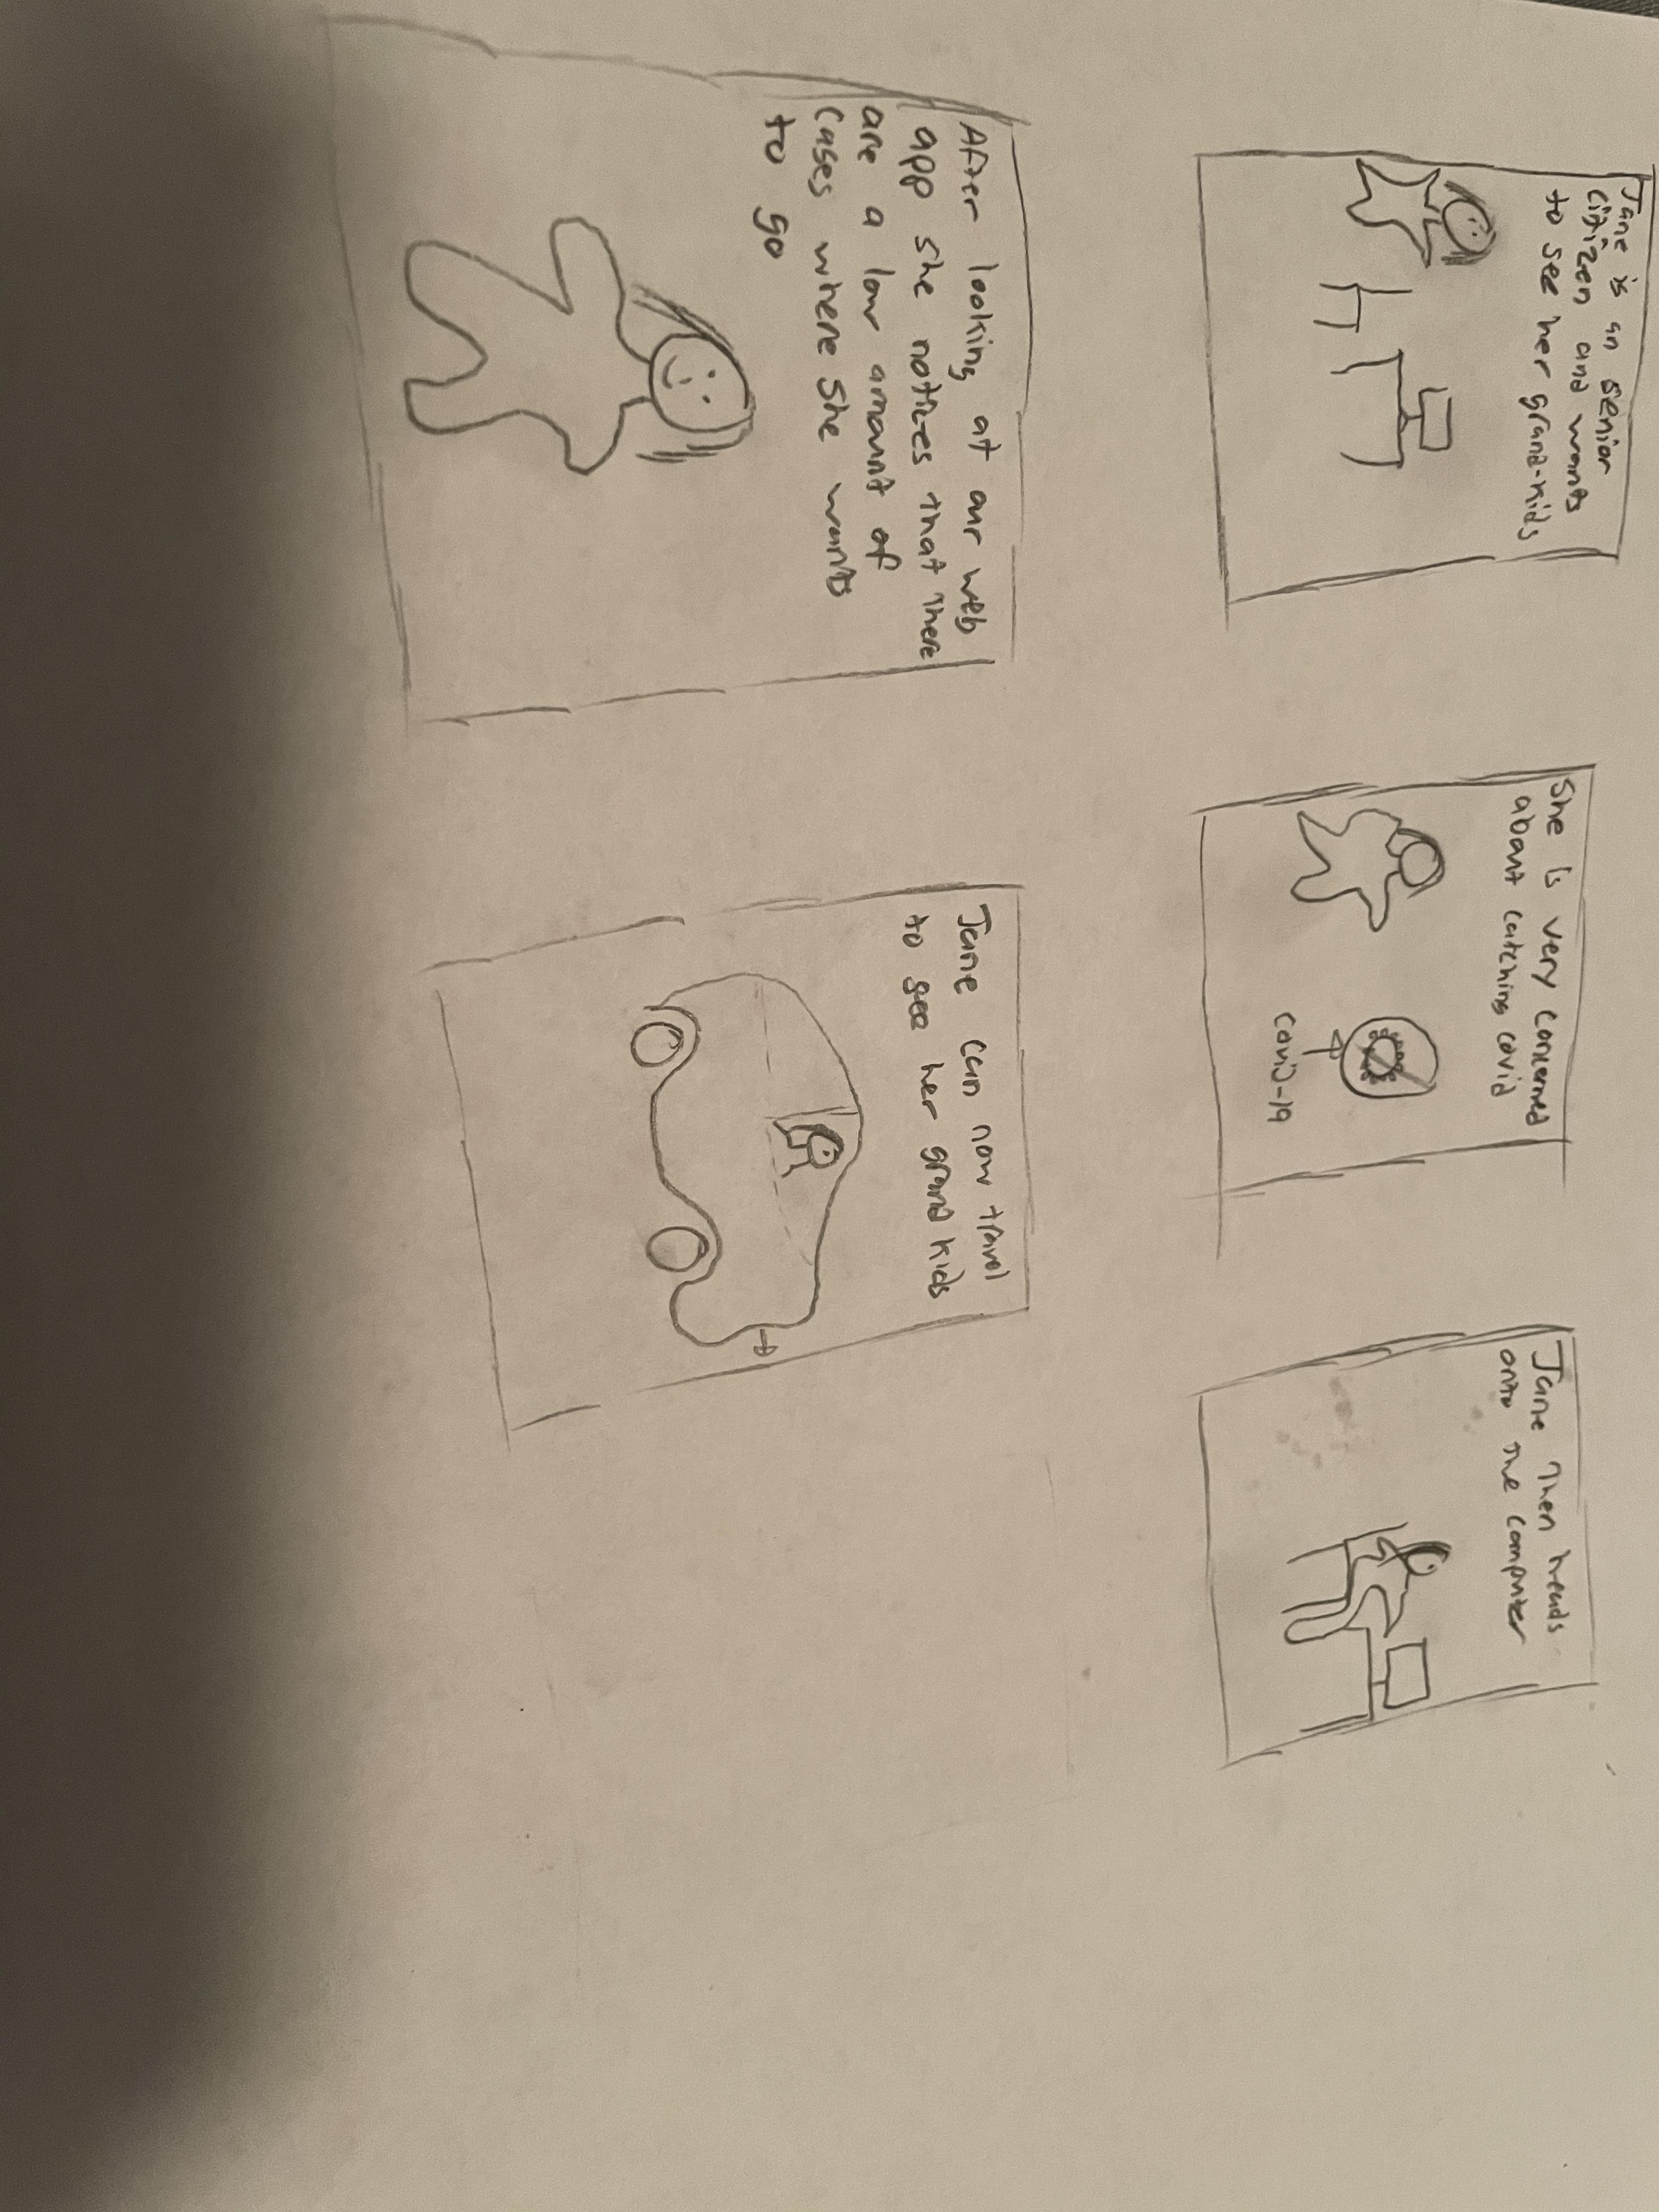 Jane is an senior
citizen and wants
to see her grand-kids
She is very concerned
about catching covid
covid-19
Jane then heads
onto the computer
After looking at our web
app she notices that there
are a low amount of
cases where she wants
to go
Jane can now travel
to see her grand kids